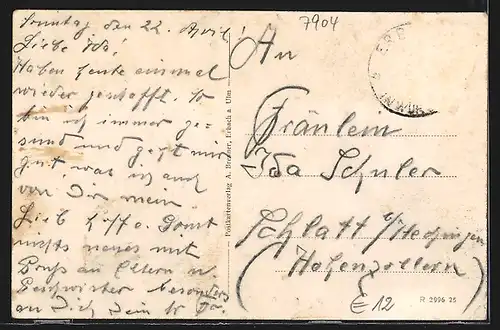 7904
Sonntag den 22. April!
Liebe Ida!
Haben heute einmal
wieder geschafft. So
bin ich immer ge-
sund und geht mir
gut, was ich auch
von Dir mein
Lieb hoffe. Sonst
nichts neues mit
Gruß an Eltern u.
Geschwister besonders
an Dich Dein
Postkartenverlag A. Brenner, Erbach a Ulm
An
Fräulein
Ida Schuler
Schlatt b/Hechingen
(Hohenzollern)
R 2996 25
E 12